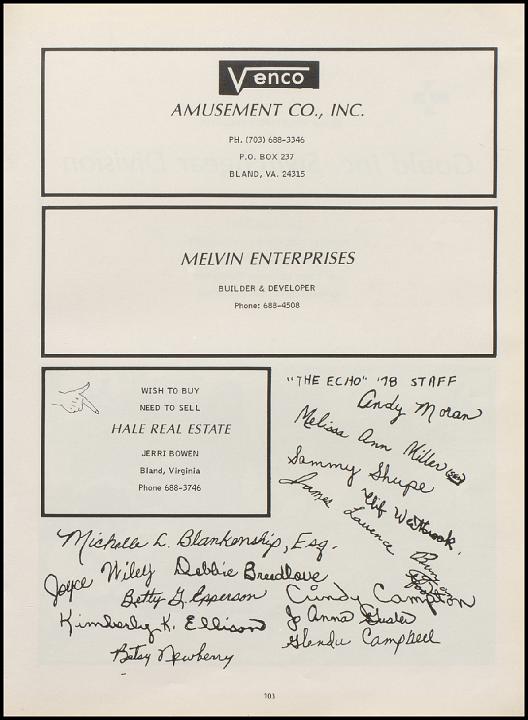 Venco
AMUSEMENT CO., INC.
PH. (703) 688-3346
P.O. BOX 237
BLAND, VA. 24315
MELVIN ENTERPRISES
BUILDER & DEVELOPER
Phone: 688-4508
WISH TO BUY
NEED TO SELL
HALE REAL ESTATE
JERRI BOWEN
Bland, Virginia
Phone 688-3746
"THE ECHO" '78 STAFF
Andy Moran
Melissa Ann Miller
Sammy Shupe
James Lawence
Michelle L. Blankenship, Esq.
Joyce Wiley Debbie Breedlove
Betty G. Epperson Cindy Compton
Kimberly K. Ellison Jo Anna
Glenda Campbell
Betsy Newberry
103